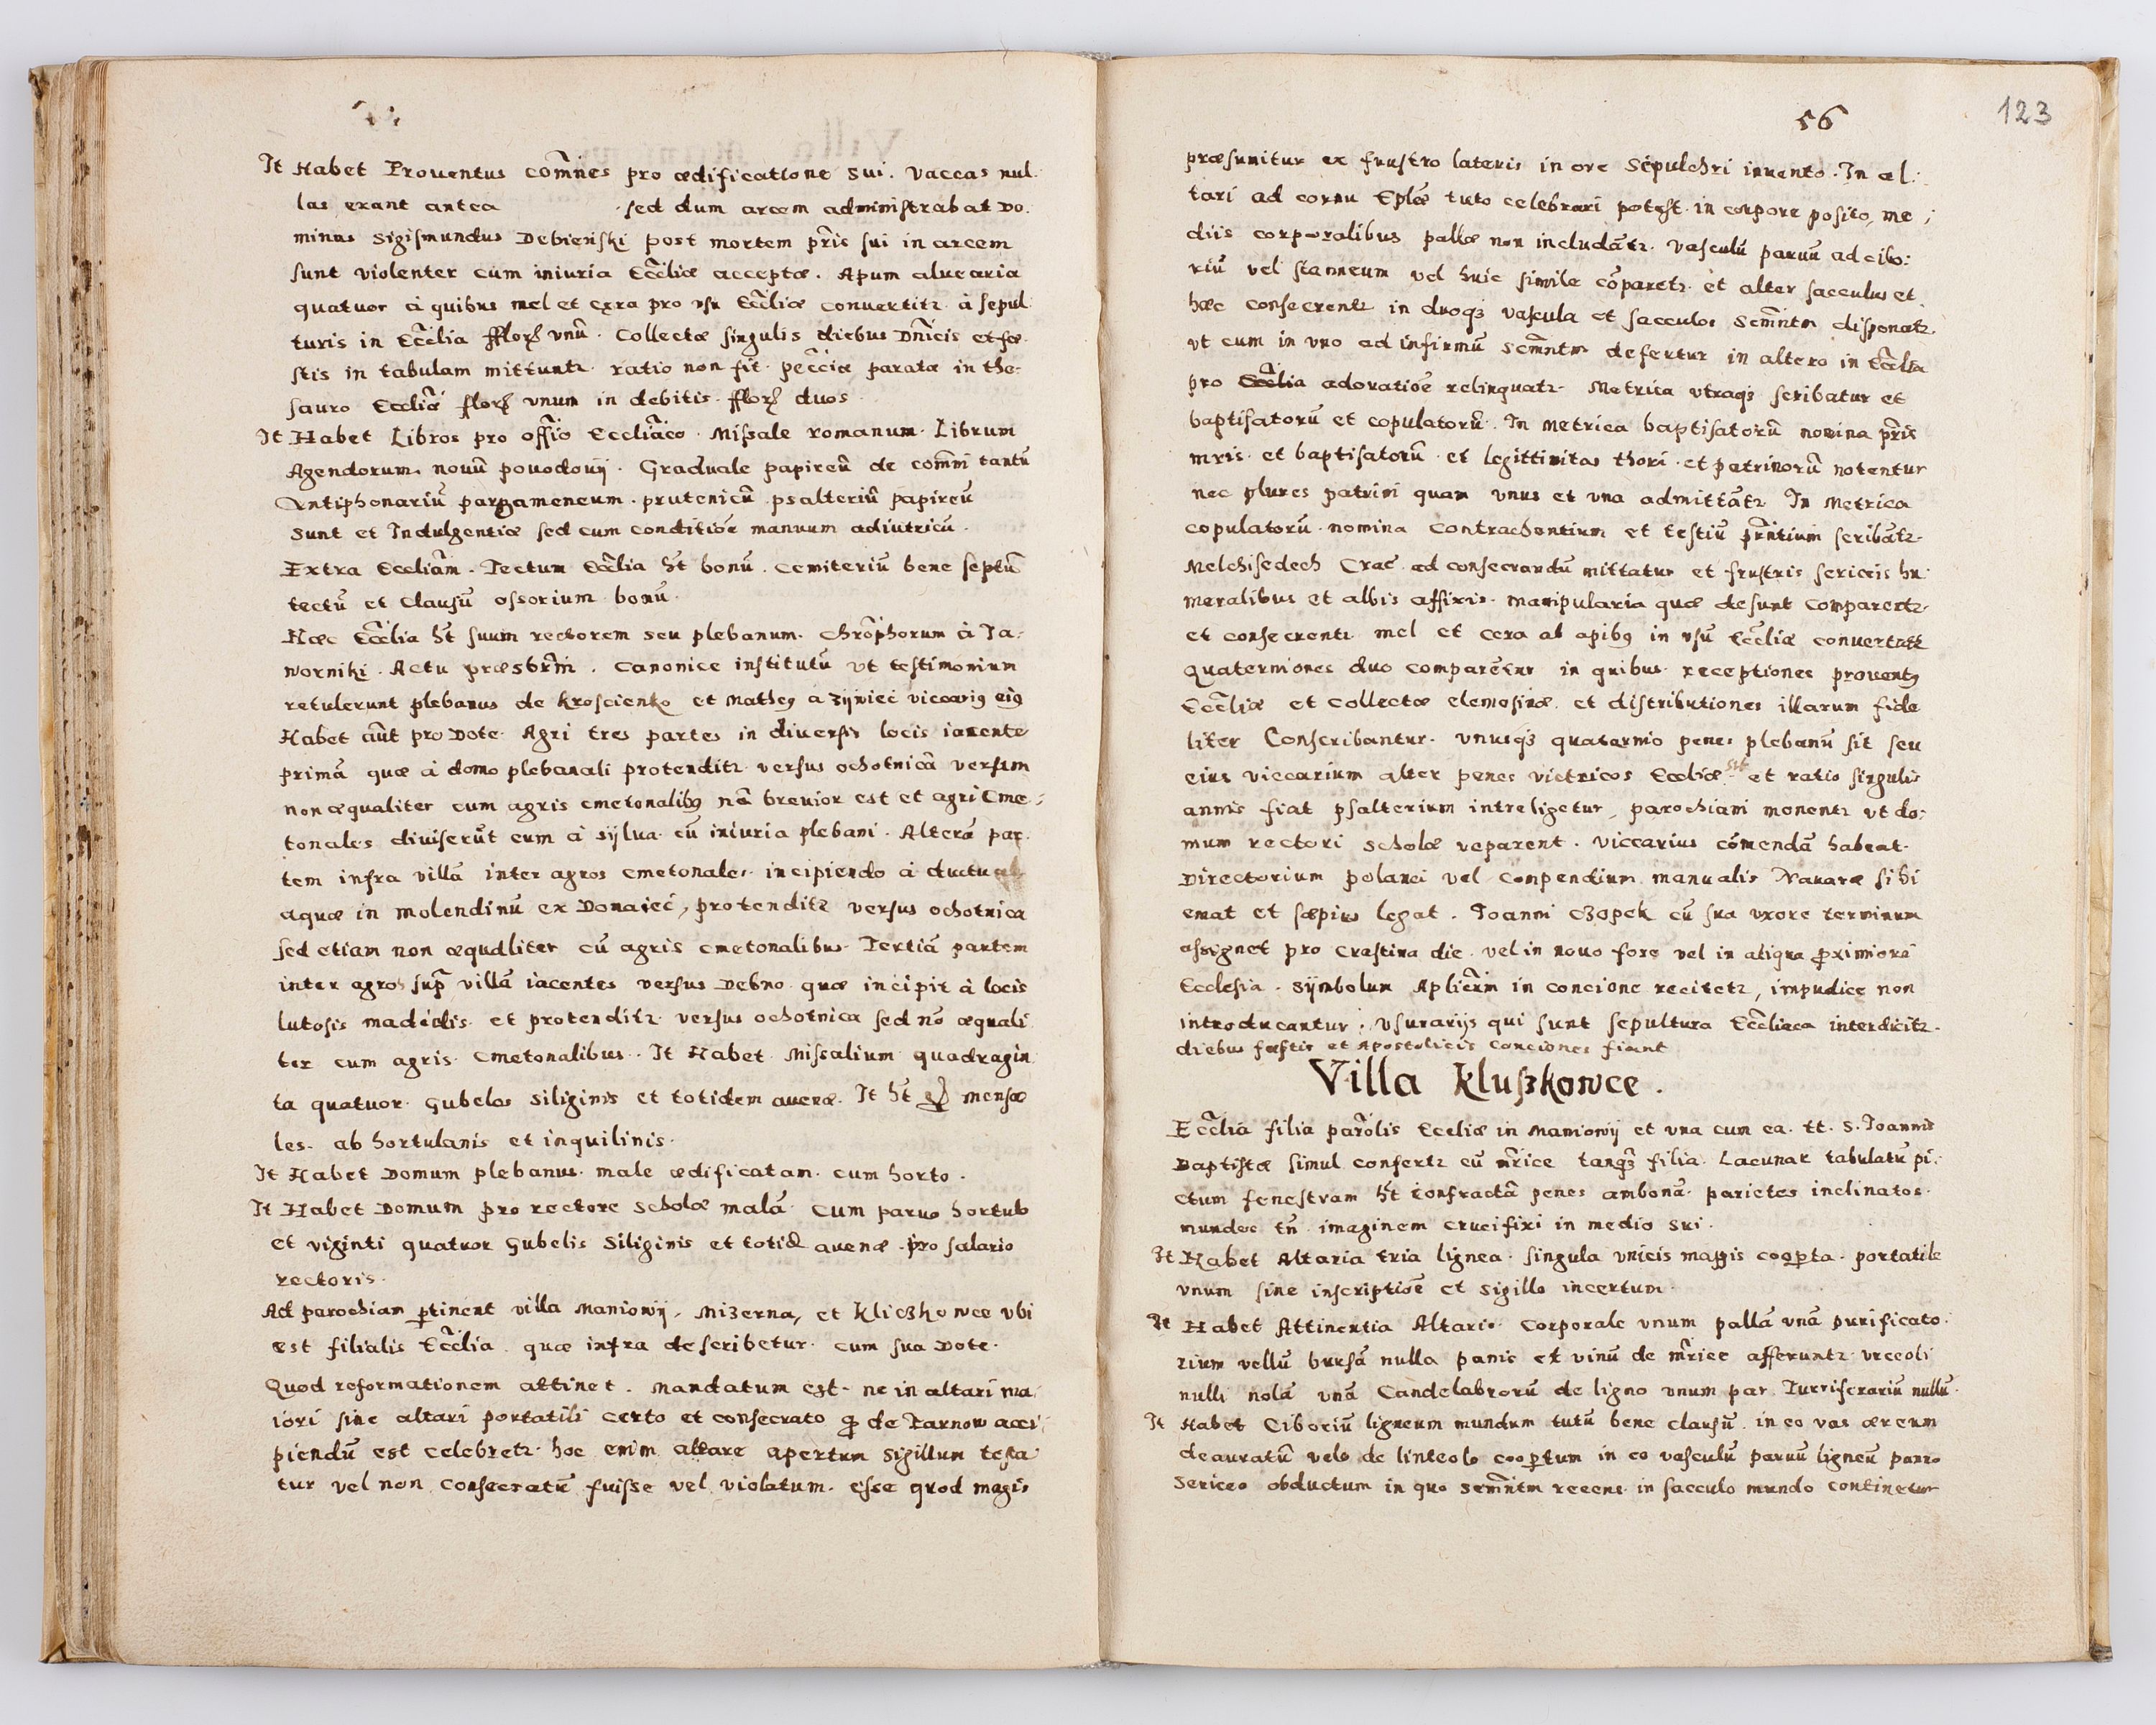 It Habet Prouentus com̃nes pro ædificatione sui. Vaccas nul:
las erant antea . sed dum arcem administrabat Do:
minus Sigismundus Debieński post mortem pr̃is sui in arcem
sunt violenter cum iniuria Ecc̃liæ acceptæ. Apum aluearia
quatuor à quibus mel et cera pro vsu Ecc̃liæ conuertitr. à sepul
turis in Ecc̃lia fflor. vnũ. Collectæ singulis diebus Dñicis et fe
stis in tabulam mittuntr. ratio non fit. pec̃ciæ paratæ in the:
sauro Eccliæ̃ flor. vnum in debitis. fflor. duos.
It Habet Libros pro offĩo Eccliãco. Missale romanum. Librum
Agendorum. nouũ pouodouij. Graduale papireũ de com̃ni tantũ
Antiphonariũ pargameneum. prutenicũ psalteriũ papireũ
Sunt et Indulgentiæ sed cum conditiõe manuum adiutricũ.
Extra Eccliãm. Tectum Ecc̃lia ht̃ bonũ. Cemiteriũ bene septũ
tectũ et Clausũ ossorium bonũ.
Hæc Ecc̃lia ht̃ suum rectorem seu plebanum. Chrõphorum à Ja:
worniki. Actu præsbr̃m. Canonice institutũ vt testimonium
retulerunt plebanus de Kroscienko et Matheꝰ a Zijwiec viccariꝰ eiꝰ
Habet aũt pro Dote. Agri tres partes in diuersis locis iacente
primã quæ à domo plebanali protenditr. versus ochotnicã versum
non æqualiter cum agris cmetonalibꝰ nã breuior est et agri Cme:
tonales diuiserũt eum à sijlua cũ iniuria plebani. Alterã par
tem infra villã inter agros cmetonales. incipiendo à ductu
aquæ in molendinũ ex Donaiec, protenditr versus ochotnica
sed etiam non æqualiter cũ agris cmetonalibus. Tertiã partem
inter agros sup̃ villã iacentes versus Debno quæ incipit à locis
lutosis madidis. et protenditr. versus ochotnica sed nõ æquali
ter cum agris. Cmetonalibus. It Habet Missalium quadragin
ta quatuor. Gubelos siliginis et totidem auenæ. It ht̃ mensæ
les. ab hortulanis et inquilinis.
It Habet Domum plebanus. male ædificatam. cum horto.
It Habet Domum pro rectore scholæ malã cum paruo hortulo
et viginti quatuor Gubelis Siliginis et totid auenæ. pro salario
rectoris.
Ad parochiam ꝑtinent villa Maniowij, Mizerna, et Kliczkowce vbi
est filialis Ecc̃lia quæ infra describetur. cum sua Dote.
Quod reformationem attinet. Mandatum est. ne in altari ma
iori sine altari portatili certo et consecrato ꝙ de Tarnow acci
piendũ est celebretr. hoc enim altare apertum Sigillum testa
tur vel non consecratũ fuisse vel violatum. esse quod magis
56
123
præsumitur ex frustro lateris in ore Sepulchri inuento. In al:
tari ad cornu Eplæ̃ tuto celebrari potest. in corpore posito, me
diis corporalibus pallæ non includãtr. Vasculũ paruũ ad cibo:
riũ vel stanneum vel huic simile cõparetr. et alter sacculus et
hæc consecrentr in duoqz vascula et sacculos Sem̃ntm disponatr.
vt cum in vno ad infirmũ Sem̃ntm defertur in altero in Ecc̃lia
pro Ecc̃lia adoratiõe relinquatr. Metrica vtraqz scribatur et
baptisatorũ et copulatorũ. In Metrica baptisatorũ nomina pr̃is
mris. et baptisatorũ. et legittimitas thori. et patrinorũ notentur
nec plures patrini quam vnus et vna admittãtr. In Metrica
copulatorũ. nomina Contrachentium et testiũ pr̃ntium scribãtr.
Melchisedech Crac̃ ad consecrandũ mittatur et frustris sericeis hu:
meralibus et albis affixis. manipularia quæ desunt comparentr.
et consecrentr mel et cera ab apibꝰ in vsũ Ecc̃liæ conuertatr
Quaterniones duo comparẽtur in quibus. receptiones prouentꝰ
Ecc̃liæ et Collectæ elemosinæ. et distributiones illarum fide
liter Conscribantur. vnusqz quaternio penes plebanũ sit seu
eius viccarium alter penes victricos Eccliæ sit et ratio singulis
annis fiat psalterium intreligetur, parochiani monentr vt do:
mum rectori scholæ reparent. Viccarius cõmendã habeat.
Directorium polanci vel compendium manualis Nauaræ sibi
emat et sæpius legat. Joanni Czopek cũ sua vxore terminum
assignet pro Crastina die. vel in nouo foro vel in aliqua ꝓximiori
Ecclesia. Sijmbolum Aplicr̃m in concione recitetr, impudice non
introducantur. Vsurarijs qui sunt sepultura Ecc̃liaca interdicitr.
diebus festis et Apostolicis Conciones fiant
Villa Kluszkowce.
Ecc̃lia filia parõlis Eccliæ in Maniowij et vna cum ea. tt. S. Joannis
Baptistæ simul confertr cũ mr̃ice tanqz filia. Lacunar tabulatũ pi:
ctum fenestram ht̃ confractã penes ambonã. parietes inclinatos.
mundos tñ. imaginem crucifixi in medio sui.
It Habet Altaria tria lignea. singula vnicis mappis cooꝑta. portatile
vnum sine inscriptiõe et sigillo incertum.
It Habet Attinentia Altaris. Corporale vnum pallã vnã purificato:
rium vellũ bursã nulla panis et vinũ de mr̃ice afferuntr. vrceoli
nulli nolã vnã Candelabrorũ de ligno vnum par. Turriferariũ nullũ.
It Habet Ciboriũ ligneum mundum tutũ bene clausũ. in eo vas æreum
deauratũ velo de linteolo cooꝑtum in eo vasculũ paruũ ligneũ panno
Sericeo obductum in quo sem̃ntm recens. in sacculo mundo continetur